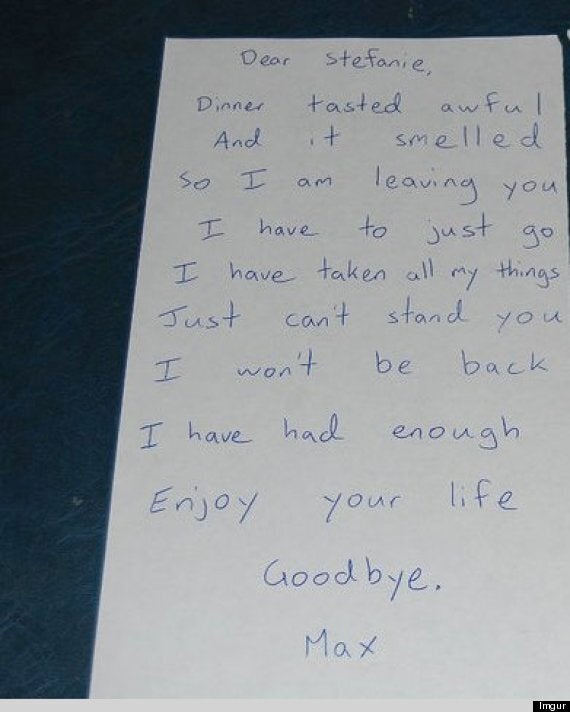 Dear Stefanie,
Dinner tasted awful
And it smelled
So I am leaving you
I have to just go
I have taken all my things
Just can't stand you
I won't be back
I have had enough
Enjoy your life
Goodbye.
Max
Imgur